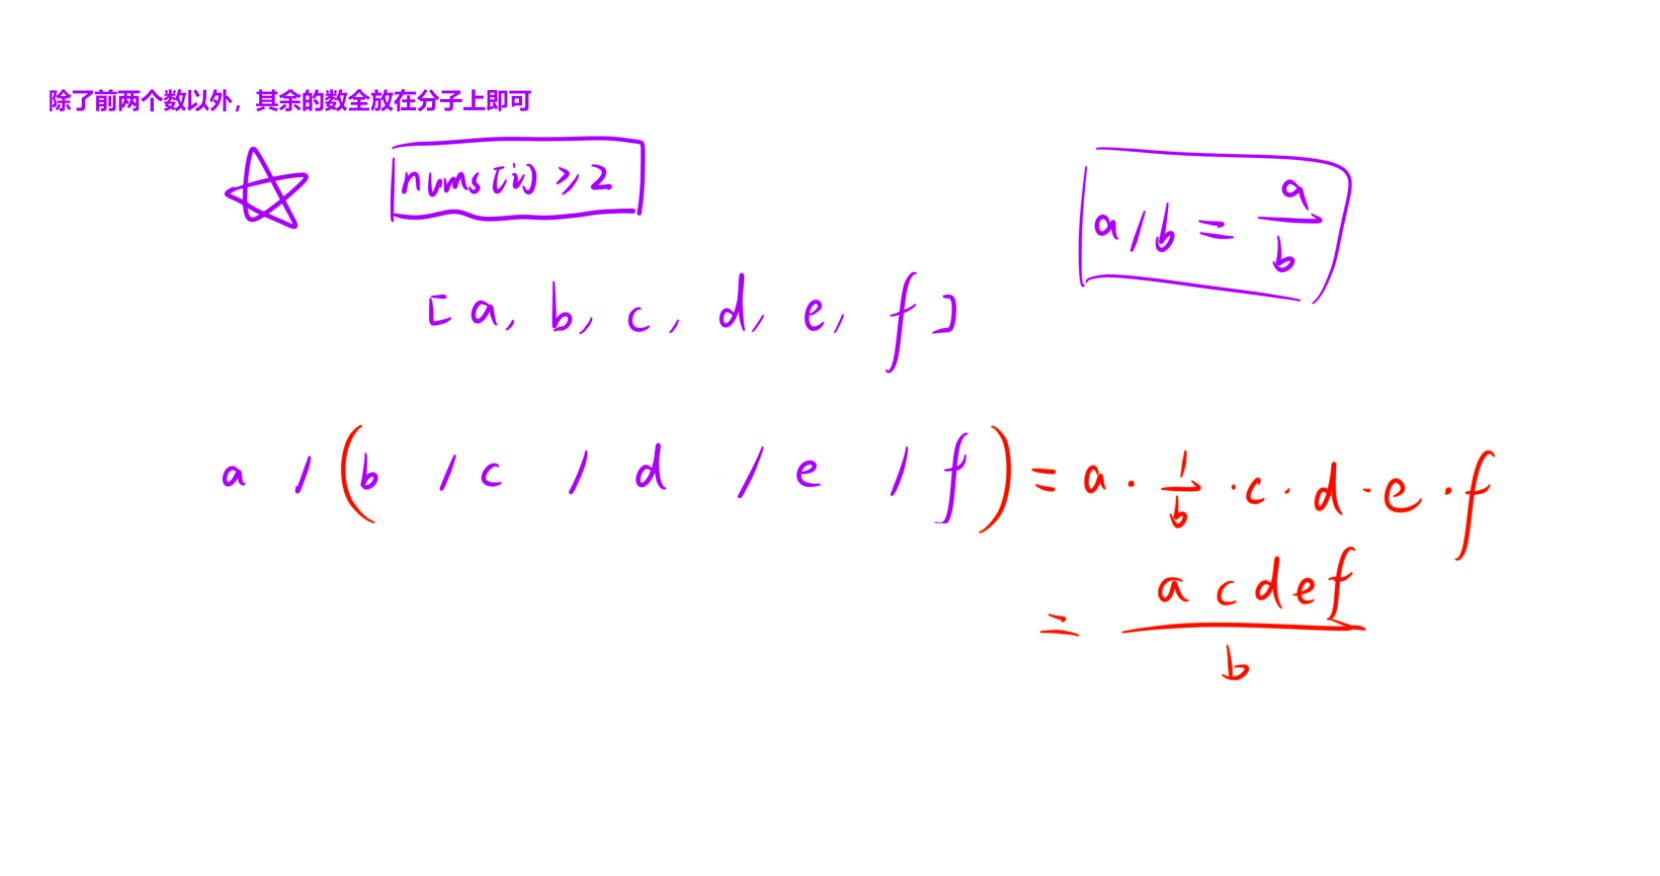 除了前两个数以外，其余的数全放在分子上即可
nums[i] ≥ 2
a / b = a/b
[a, b, c, d, e, f]
a / (b / c / d / e / f) = a · 1/b · c · d · e · f
= acdef/b